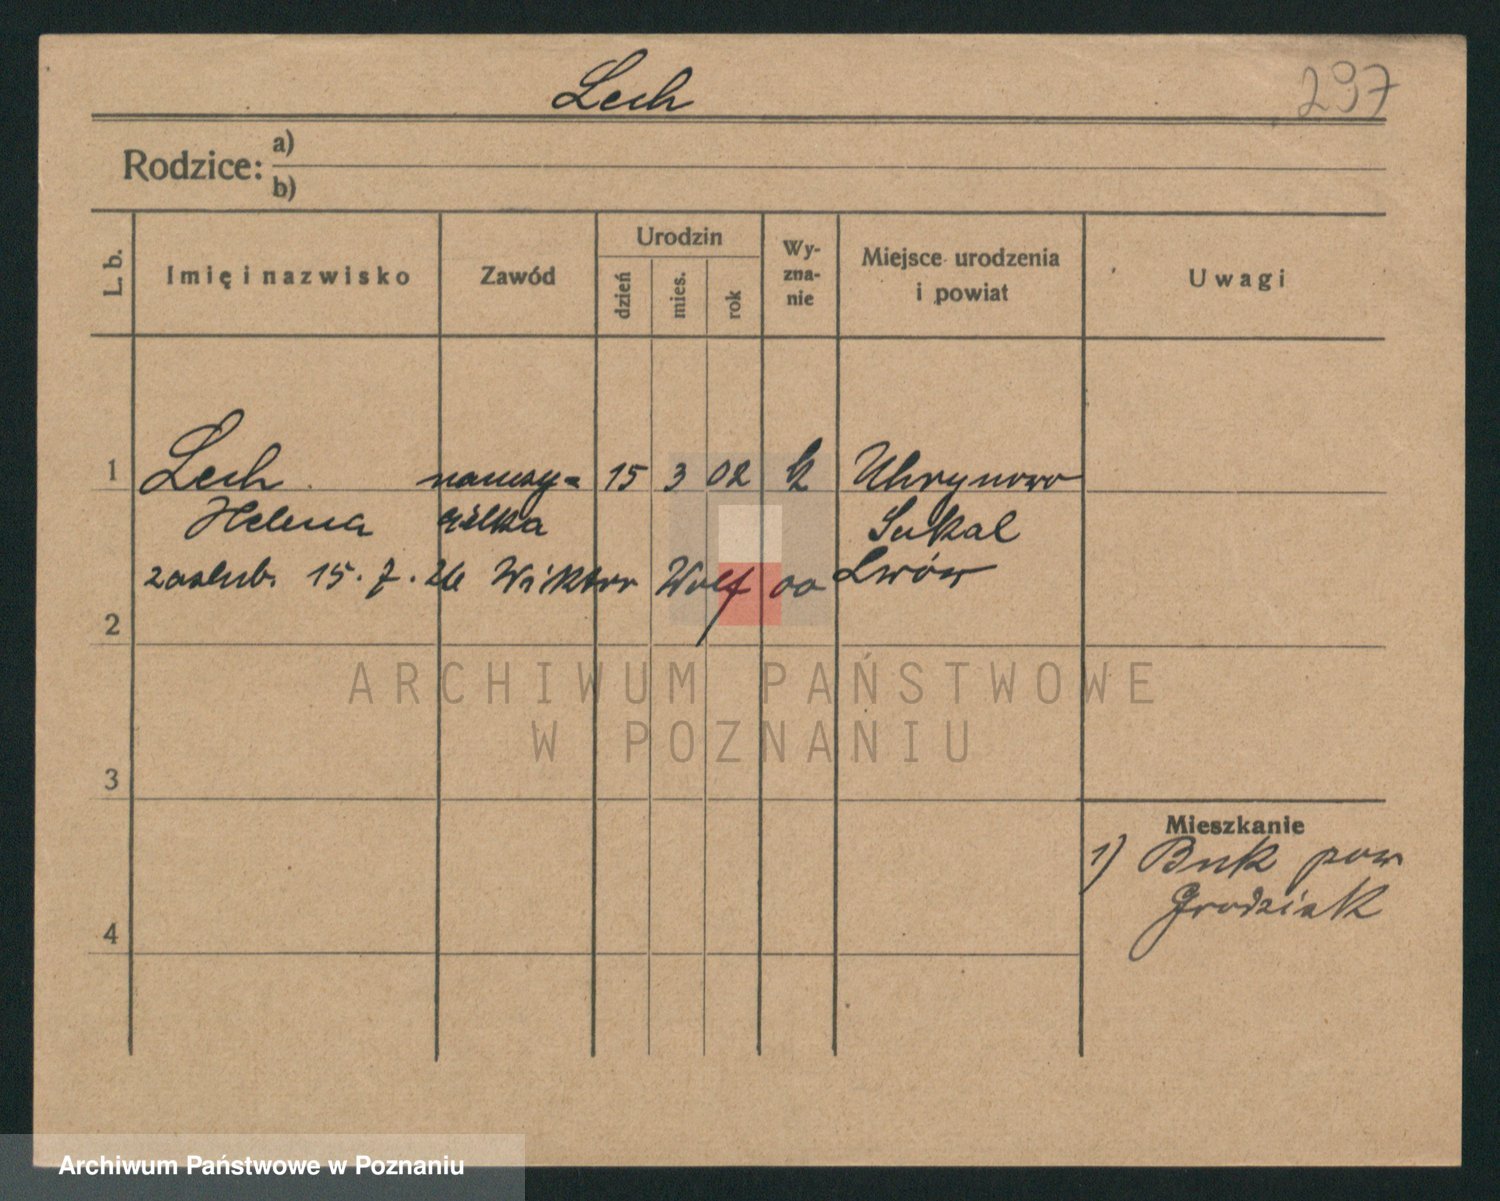 Lech
297
Rodzice: a)
b)
L. b.
Imię i nazwisko
Zawód
Urodzin
dzień
mies.
rok
Wy-
zna-
nie
Miejsce urodzenia
i powiat
Uwagi
1 Lech nauczy= 15 3 02 k Uhrynowo
Helena cielka Sukal
zaślub. 15. 7. 26 Wiktor Wolf oo Lwów
2
ARCHIWUM PAŃSTWOWE
W POZNANIU
3
Mieszkanie
1) Buk pow
Grodzisk
4
Archiwum Państwowe w Poznaniu